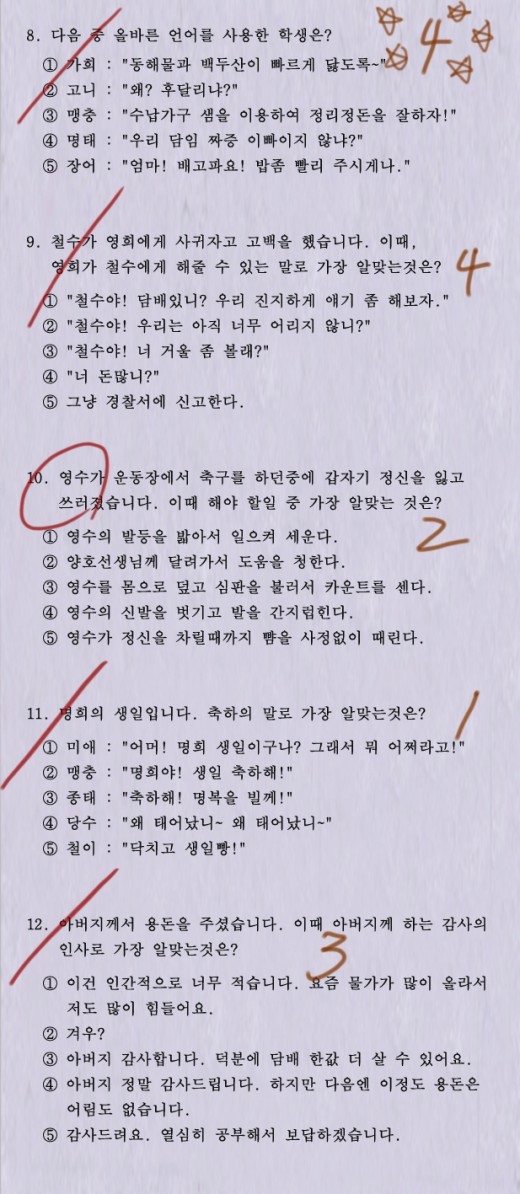 8. 다음 중 올바른 언어를 사용한 학생은? 4
① 가희 : "동해물과 백두산이 빠르게 닳도록~"
② 고니 : "왜? 후달리냐?"
③ 맹충 : "수납가구 샘을 이용하여 정리정돈을 잘하자!"
④ 명태 : "우리 담임 짜증 이빠이지 않냐?"
⑤ 장어 : "엄마! 배고파요! 밥좀 빨리 주시게나."
9. 철수가 영희에게 사귀자고 고백을 했습니다. 이때,
영희가 철수에게 해줄 수 있는 말로 가장 알맞는것은? 4
① "철수야! 담배있니? 우리 진지하게 얘기 좀 해보자."
② "철수야! 우리는 아직 너무 어리지 않니?"
③ "철수야! 너 거울 좀 볼래?"
④ "너 돈많니?"
⑤ 그냥 경찰서에 신고한다.
10. 영수가 운동장에서 축구를 하던중에 갑자기 정신을 잃고
쓰러졌습니다. 이때 해야 할일 중 가장 알맞는 것은?
① 영수의 발등을 밟아서 일으켜 세운다. 2
② 양호선생님께 달려가서 도움을 청한다.
③ 영수를 몸으로 덮고 심판을 불러서 카운트를 센다.
④ 영수의 신발을 벗기고 발을 간지럽힌다.
⑤ 영수가 정신을 차릴때까지 뺨을 사정없이 때린다.
11. 명희의 생일입니다. 축하의 말로 가장 알맞는것은? 1
① 미애 : "어머! 명희 생일이구나? 그래서 뭐 어쩌라고!"
② 맹충 : "명희야! 생일 축하해!"
③ 종태 : "축하해! 명복을 빌께!"
④ 당수 : "왜 태어났니~ 왜 태어났니~"
⑤ 철이 : "닥치고 생일빵!"
12. 아버지께서 용돈을 주셨습니다. 이때 아버지께 하는 감사의
인사로 가장 알맞는것은? 3
① 이건 인간적으로 너무 적습니다. 요즘 물가가 많이 올라서
저도 많이 힘들어요.
② 겨우?
③ 아버지 감사합니다. 덕분에 담배 한값 더 살 수 있어요.
④ 아버지 정말 감사드립니다. 하지만 다음엔 이정도 용돈은
어림도 없습니다.
⑤ 감사드려요. 열심히 공부해서 보답하겠습니다.